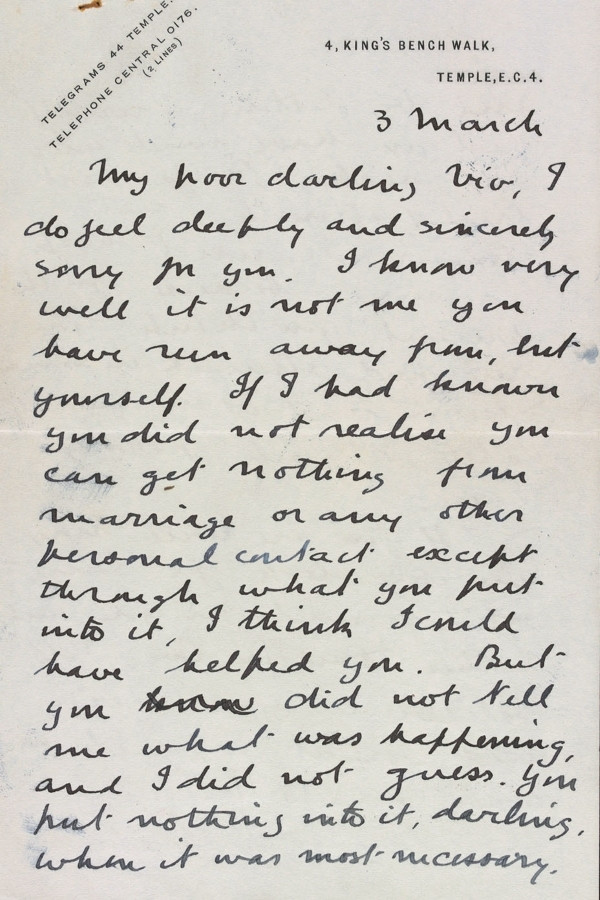 TELEGRAMS 44 TEMPLE.
TELEPHONE CENTRAL 0176.
(2 LINES)
4, KING'S BENCH WALK,
TEMPLE, E.C.4.
3 March
My poor darling Viv, I
do feel deeply and sincerely
sorry for you. I know very
well it is not me you
have run away from, but
yourself. If I had known
you did not realise you
can get nothing from
marriage or any other
personal contact except
through what you put
into it, I think I could
have helped you. But
you know did not tell
me what was happening,
and I did not guess. You
put nothing into it, darling,
when it was most necessary.